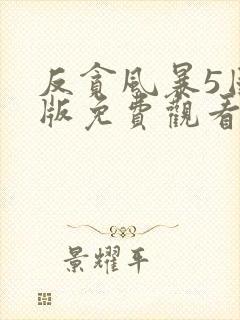 反貪風暴5
版免費觀看
景耀平